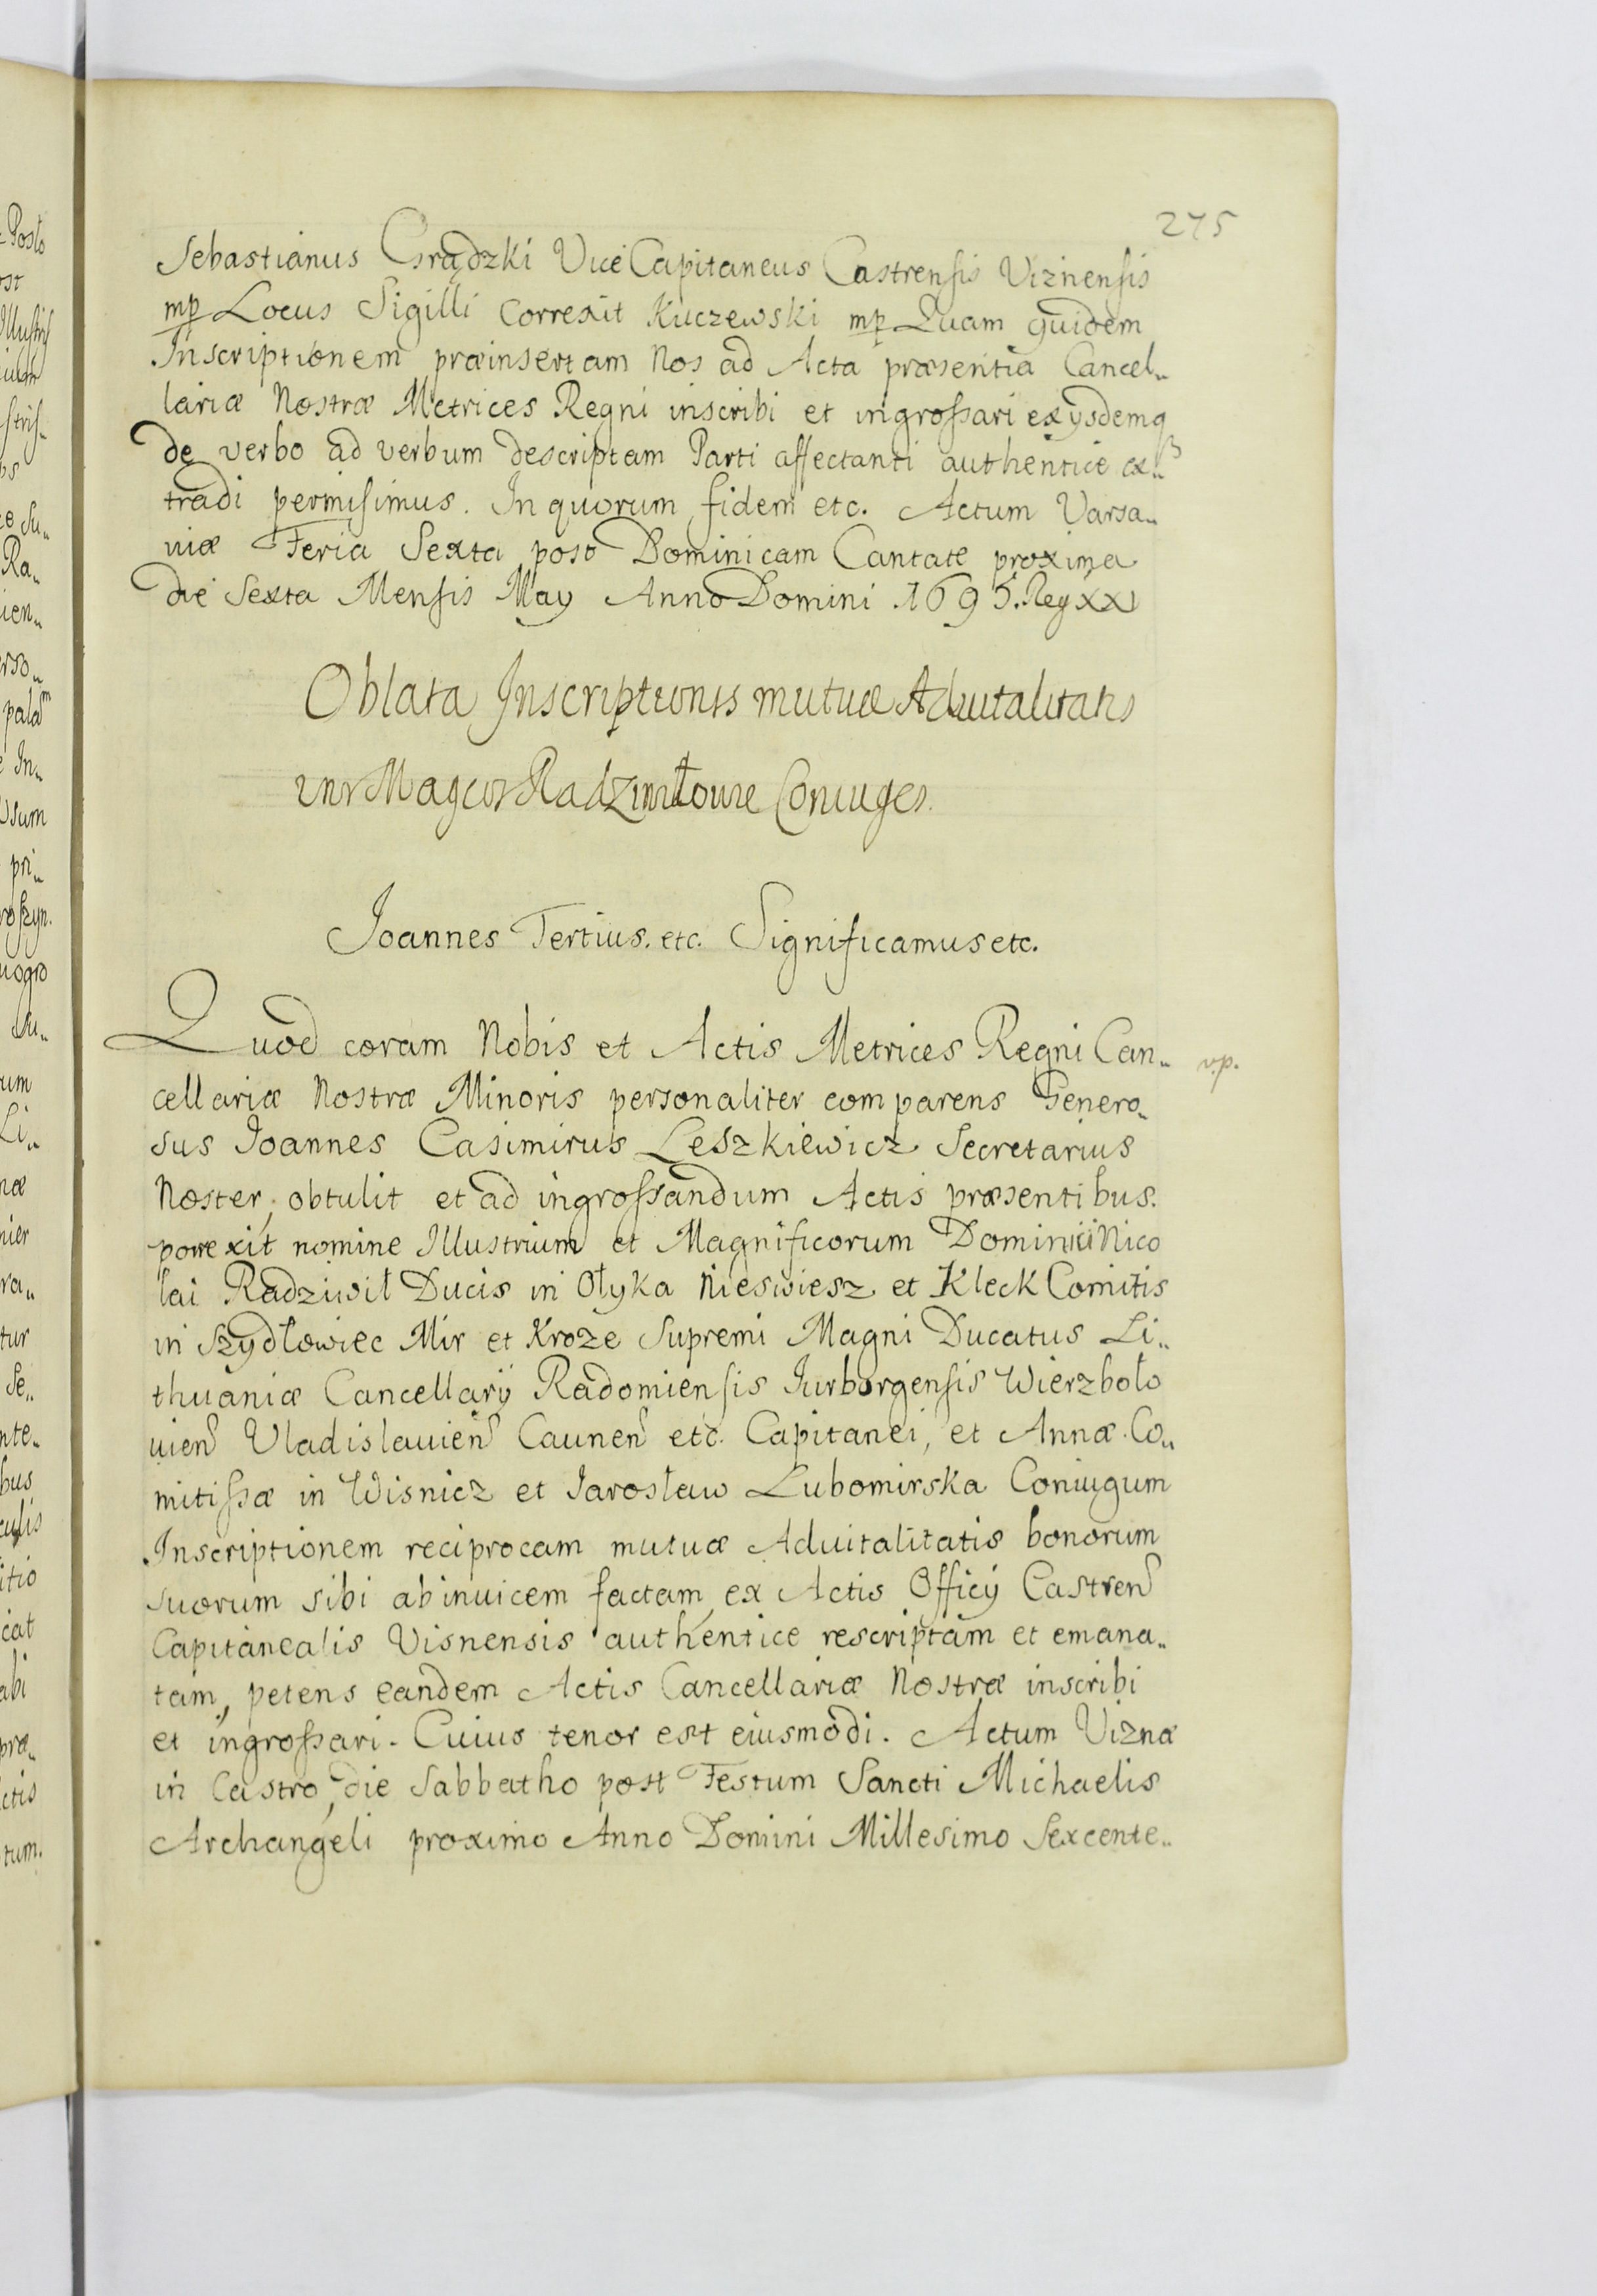 275
Sebastianus Grądzki Vice Capitaneus Castrensis Viznensis
mp Locus Sigilli Correxit Kuczewski mp Quam quidem
Inscriptionem præinsertam Nos ad Acta præsentia Cancel„
lariæ Nostræ Metrices Regni inscribi et ingrossari exijsdemq3
de verbo ad verbum descriptam Parti affectanti authentice ex„
tradi permisimus. In quorum fidem etc. Actum Varsa„
uiæ Feria Sexta post Dominicam Cantate proxima
die Sexta Mensis May Anno Domini 1695. Reg XXI
Oblata Inscriptionis mutuæ Aduitalitatis
intr Magcos Radziwiłowie Coniuges.
Joannes Tertius. etc. Significamus etc.
Quod coram Nobis et Actis Metrices Regni Can„ v.p.
cellariæ Nostræ Minoris personaliter comparens Genero„
sus Joannes Casimirus Leszkiewicz Secretarius
Noster, obtulit et ad ingrossandum Actis præsentibus.
porrexit nomine Illustrium et Magnificorum Dominici Nico
lai Radziwił Ducis in Ołyka Nieswiesz et Kleck Comitis
in Szydłowiec Mir et Kroze Supremi Magni Ducatus Li„
thuaniæ Cancellarij Radomiensis Iurborgensis Wierzboło
uien Vladislauien Caunen etc. Capitanei, et Annæ Co„
mitissæ in Wisnicz et Jarosław Lubomirska Coniugum
Inscriptionem reciprocam mutuæ Aduitalitatis bonorum
suorum sibi abinuicem factam, ex Actis Officij Castren
Capitanealis Visnensis authentice rescriptam et emana„
tam, petens eandem Actis Cancellariæ Nostræ inscribi
et ingrossari. Cuius tenor est eiusmodi. Actum Viznæ
in Castro, die Sabbatho post Festum Sancti Michaelis
Archangeli proximo Anno Domini Millesimo Sexcente„